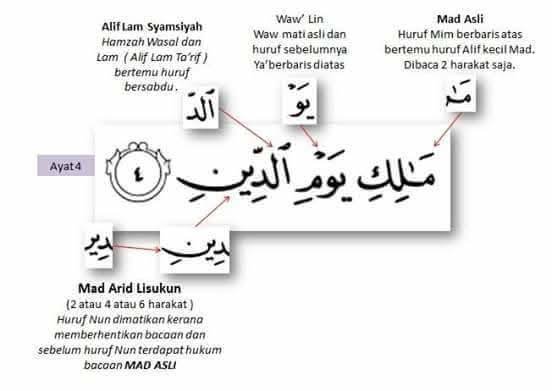 Alif Lam Syamsiyah
Hamzah Wasal dan
Lam ( Alif Lam Ta'rif )
bertemu huruf
bersabdu .
Waw' Lin
Waw mati asli dan
huruf sebelumnya
Ya'berbaris diatas
Mad Asli
Huruf Mim berbaris atas
bertemu huruf Alif kecil Mad.
Dibaca 2 harakat saja.
الدّ
يَوْ
مَـٰ
Ayat 4
مَـٰلِكِ يَوْمِ الدِّينِ ٤
دِيـ
دِينِ
Mad Arid Lisukun
(2 atau 4 atau 6 harakat )
Huruf Nun dimatikan kerana
memberhentikan bacaan dan
sebelum huruf Nun terdapat hukum
bacaan MAD ASLI